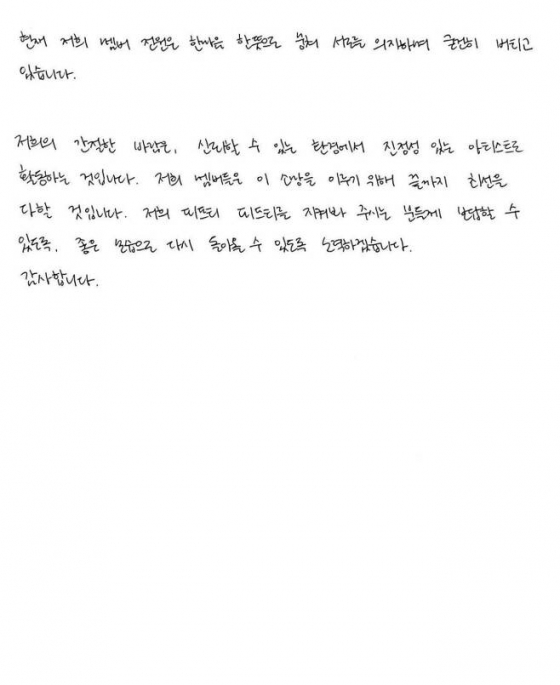 현재 저희 멤버 전원은 한마음 한뜻으로 뭉쳐 서로를 의지하며 굳건히 버티고
있습니다.
저희의 간절한 바람은, 신뢰할 수 있는 환경에서 진정성 있는 아티스트로
활동하는 것입니다. 저희 멤버들은 이 소망을 이루기 위해 끝까지 최선을
다할 것입니다. 저희 피프티 피프티를 지켜봐 주시는 분들께 보답할 수
있도록, 좋은 모습으로 다시 돌아올 수 있도록 노력하겠습니다.
감사합니다.